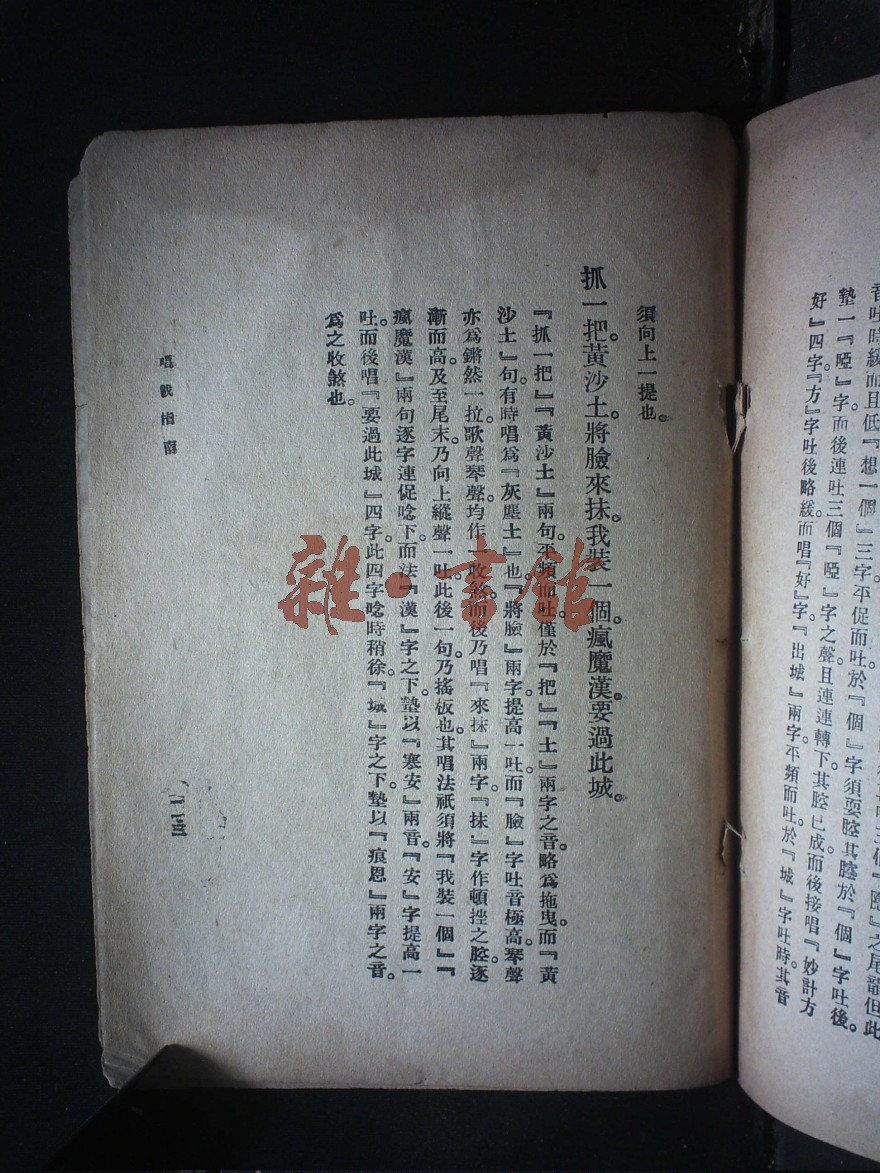 音吐時緩而且低。『想一個』三字平促而吐於『個』字須耍腔其腔於『個』字吐後。
墊一『啞』字而後連吐三個『啞』字之聲且連連轉下其腔已成而後接唱『妙計方
好』四字『方』字吐後略緩而唱『好』字。『出城』兩字平頻而吐於『城』字吐時其音
須向上一提也。
抓一把。黃沙土。將臉來抹。我裝一個。瘋魔漢。要過此城。
『抓一把』『黃沙土』兩句平頻而吐僅於『把』『土』兩字之音。略爲拖曳。而『黃
沙土』句有時唱爲『灰塵土』也。『將臉』兩字提高一吐。而『臉』字吐音極高。琴聲
亦爲鏘然一拉。歌聲琴聲。均作一收煞。而後乃唱『來抹』兩字。『抹』字作頓挫之腔。逐
漸而高。及至尾末。乃向上縱聲一吐。此後一句乃搖板也。其唱法祇須將『我裝一個』『
瘋魔漢』兩句逐字連促唸下而法『漢』字之下。墊以『寒安』兩音。『安』字提高一
吐。而後唱『要過此城』四字。此四字唸時稍徐。『城』字之下。墊以『痕恩』兩字之音。
爲之收煞也。
唱戲指南
雜·書館